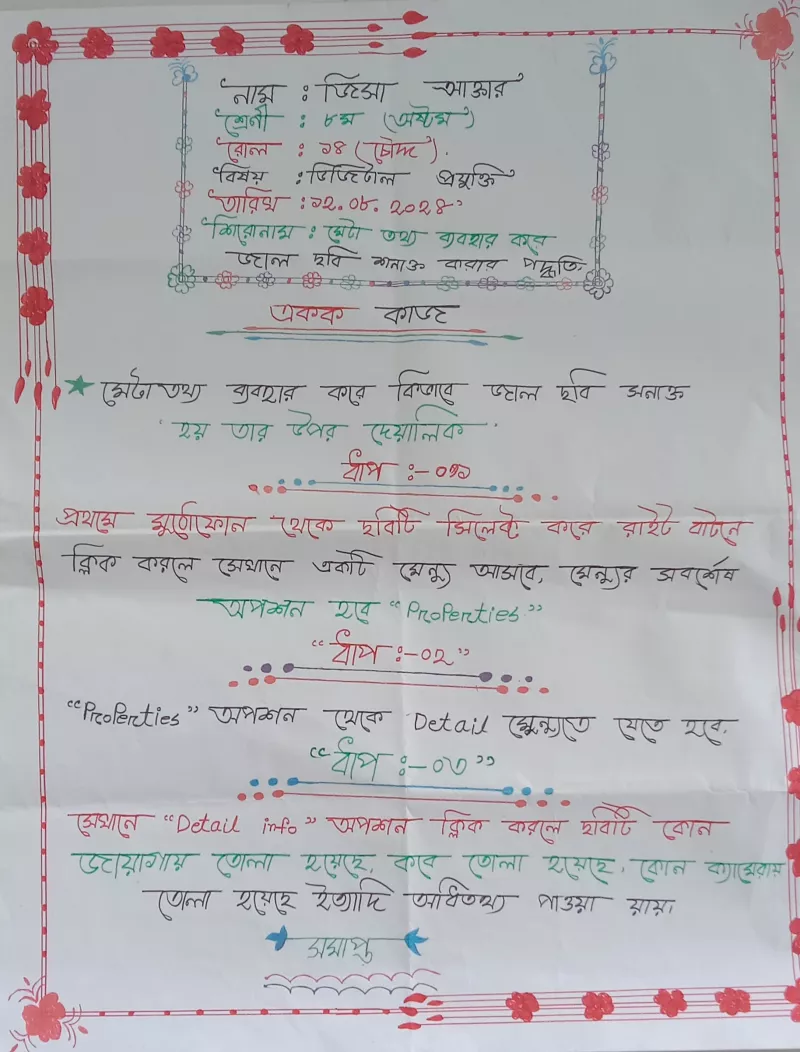 নাম : জিসা আক্তার
শ্রেনী : ৮ম (অষ্টম)
রোল : ১৪ (চৌদ্দ).
বিষয় : ডিজিটাল প্রযুক্তি
তারিখ : ১২.০৮. ২০২৪
শিরোনাম : মেটা তথ্য ব্যবহার করে
জাল ছবি শনাক্ত করার পদ্ধতি.
একক কাজ
মেটা তথ্য ব্যবহার করে কিভাবে জাল ছবি সনাক্ত
হয় তার উপর দেয়ালিক
ধাঁপ :- ০১
প্রথমে মুঠোফোন থেকে ছবিটি সিলেক্ট করে রাইট বাটনে
ক্লিক করলে সেখানে একটি মেন্যু আসবে, মেন্যুর সবর্শেষ
অপশন হবে “Properties”
“ধাঁপ :-০২”
“Properties” অপশন থেকে Detail মেন্যুতে যেতে হবে.
“ধাঁপ :-০৩”
সেখানে “Detail info” অপশন ক্লিক করলে ছবিটি কোন
জায়াগায় তোলা হয়েছে, কবে তোলা হয়েছে, কোন ক্যামেরায়
তোলা হয়েছে ইত্যাদি অধিতথ্য পাওয়া যায়।
সমাপ্ত